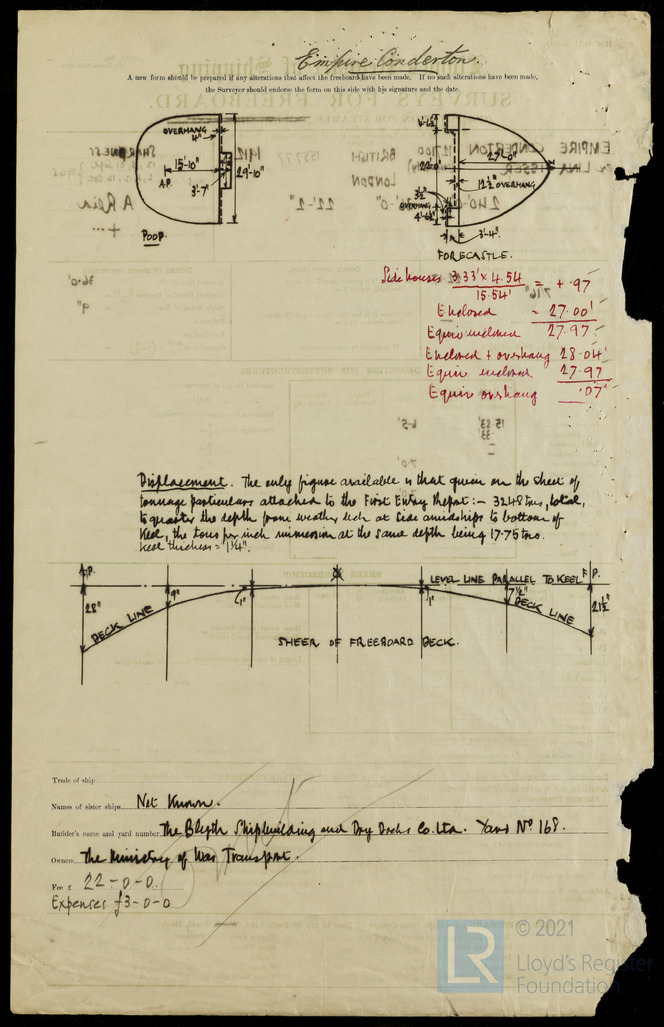 Empire Conderton.
A new form should be prepared if any alterations that affect the freeboard have been made. If no such alterations have been made,
the Surveyor should endorse the form on this side with his signature and the date.
OVERHANG
4"
15'-10"
A.P.
3'-7"
29'-10"
POOP.
4'-6½"
22'-0"
27'-0"
12½" OVERHANG
3½"
OVERHANG
4'-6½"
3'-4"
FORECASTLE.
Side houses 3.33' x 4.54 = + .97
15.54'
Enclosed = 27.00'
Equiv enclosed 27.97
Enclosed + overhang 28.04'
Equiv enclosed 27.97
Equiv overhang .07'
Displacement. The only figure available is that given on the sheet of
tonnage particulars attached to the First Entry Report:- 3248 tons, total,
to quarter the depth from weather deck at side amidships to bottom of
keel, the tons per inch immersion at the same depth being 17.75 tons.
keel thickness = 1¼".
A.P.
LEVEL LINE PARALLEL TO KEEL
F.P.
28"
DECK LINE
9"
1"
1"
7½"
DECK LINE
21½"
SHEER OF FREEBOARD DECK.
Trade of ship
Names of sister ships Not Known.
Builder's name and yard number The Blyth Shipbuilding and Dry Docks Co. Ltd. Yard No 168.
Owners The Ministry of War Transport.
Fee £ 22-0-0.
Expenses £3-0-0
LR
© 2021
Lloyd's Register
Foundation